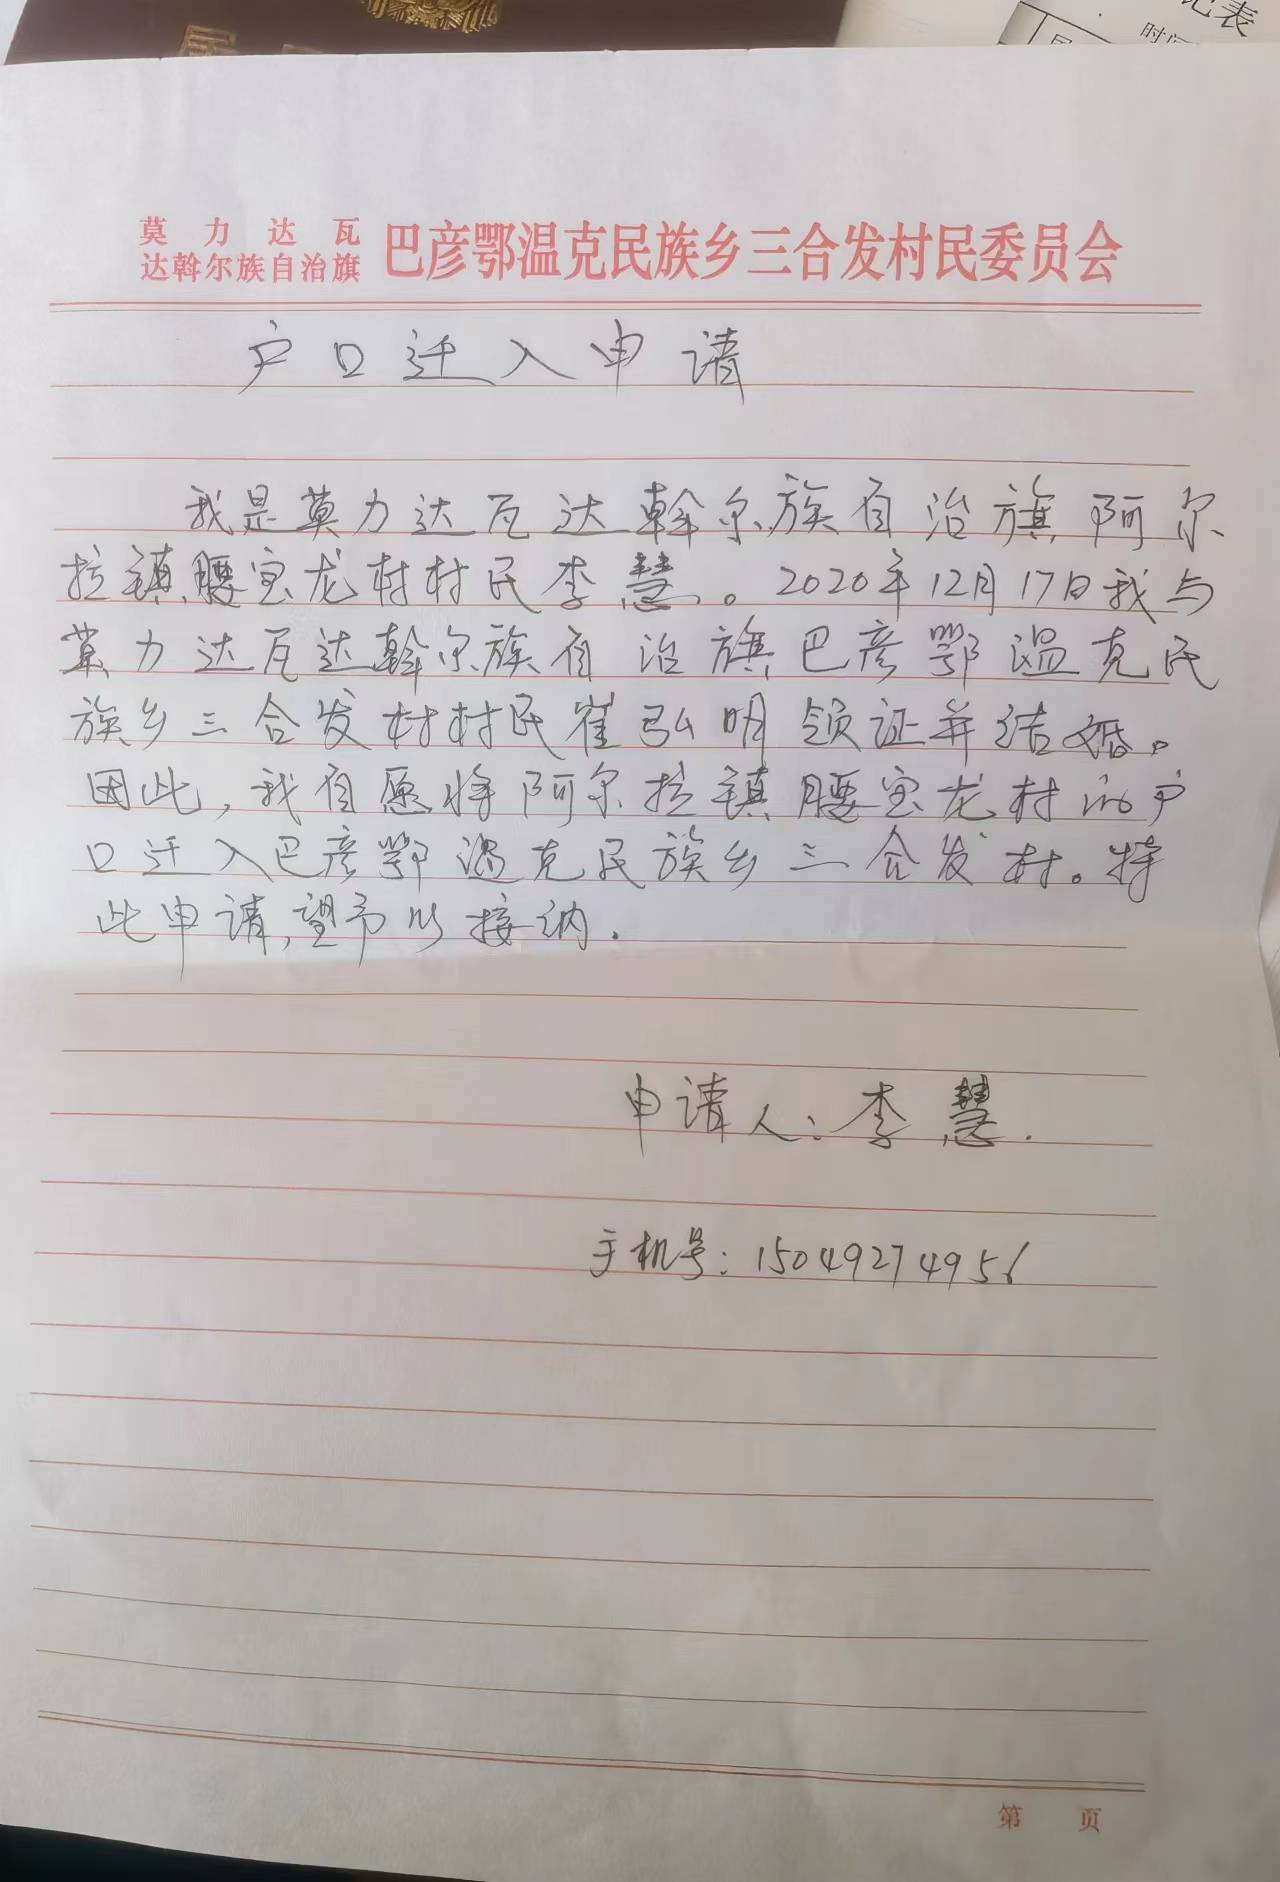 居
记表
时间
莫力达瓦
达斡尔族自治旗 巴彦鄂温克民族乡三合发村民委员会
户口迁入申请
我是莫力达瓦达斡尔族自治旗阿尔
拉镇腰宝龙村村民李慧。2020年12月17日我与
莫力达瓦达斡尔族自治旗巴彦鄂温克民
族乡三合发村村民崔弘明领证并结婚。
因此,我自愿将阿尔拉镇腰宝龙村的户
口迁入巴彦鄂温克民族乡三合发村。特
此申请,望予以接纳.
申请人:李慧.
手机号:15049274956
第 页